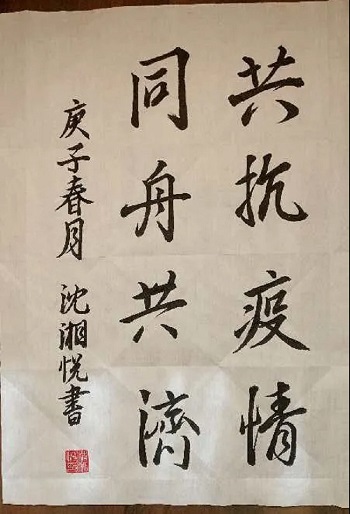 共抗疫情
同舟共濟
庚子春月 沈湘悦書